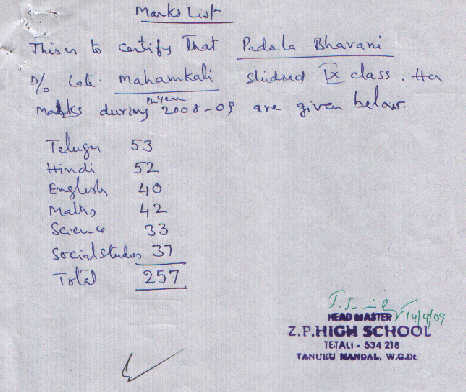 Marks List
This is to certify That Pudala Bhavani
D/o Late. Mahamkali studied IX class. Her
marks during the year 2008-09 are given below
Telugu 53
Hindi 52
English 40
Maths 42
Science 33
Social studies 37
Total 257
14/4/09
HEAD MASTER
Z.P.HIGH SCHOOL
TETALI - 534 218
TANUKU MANDAL, W.G.Dt.